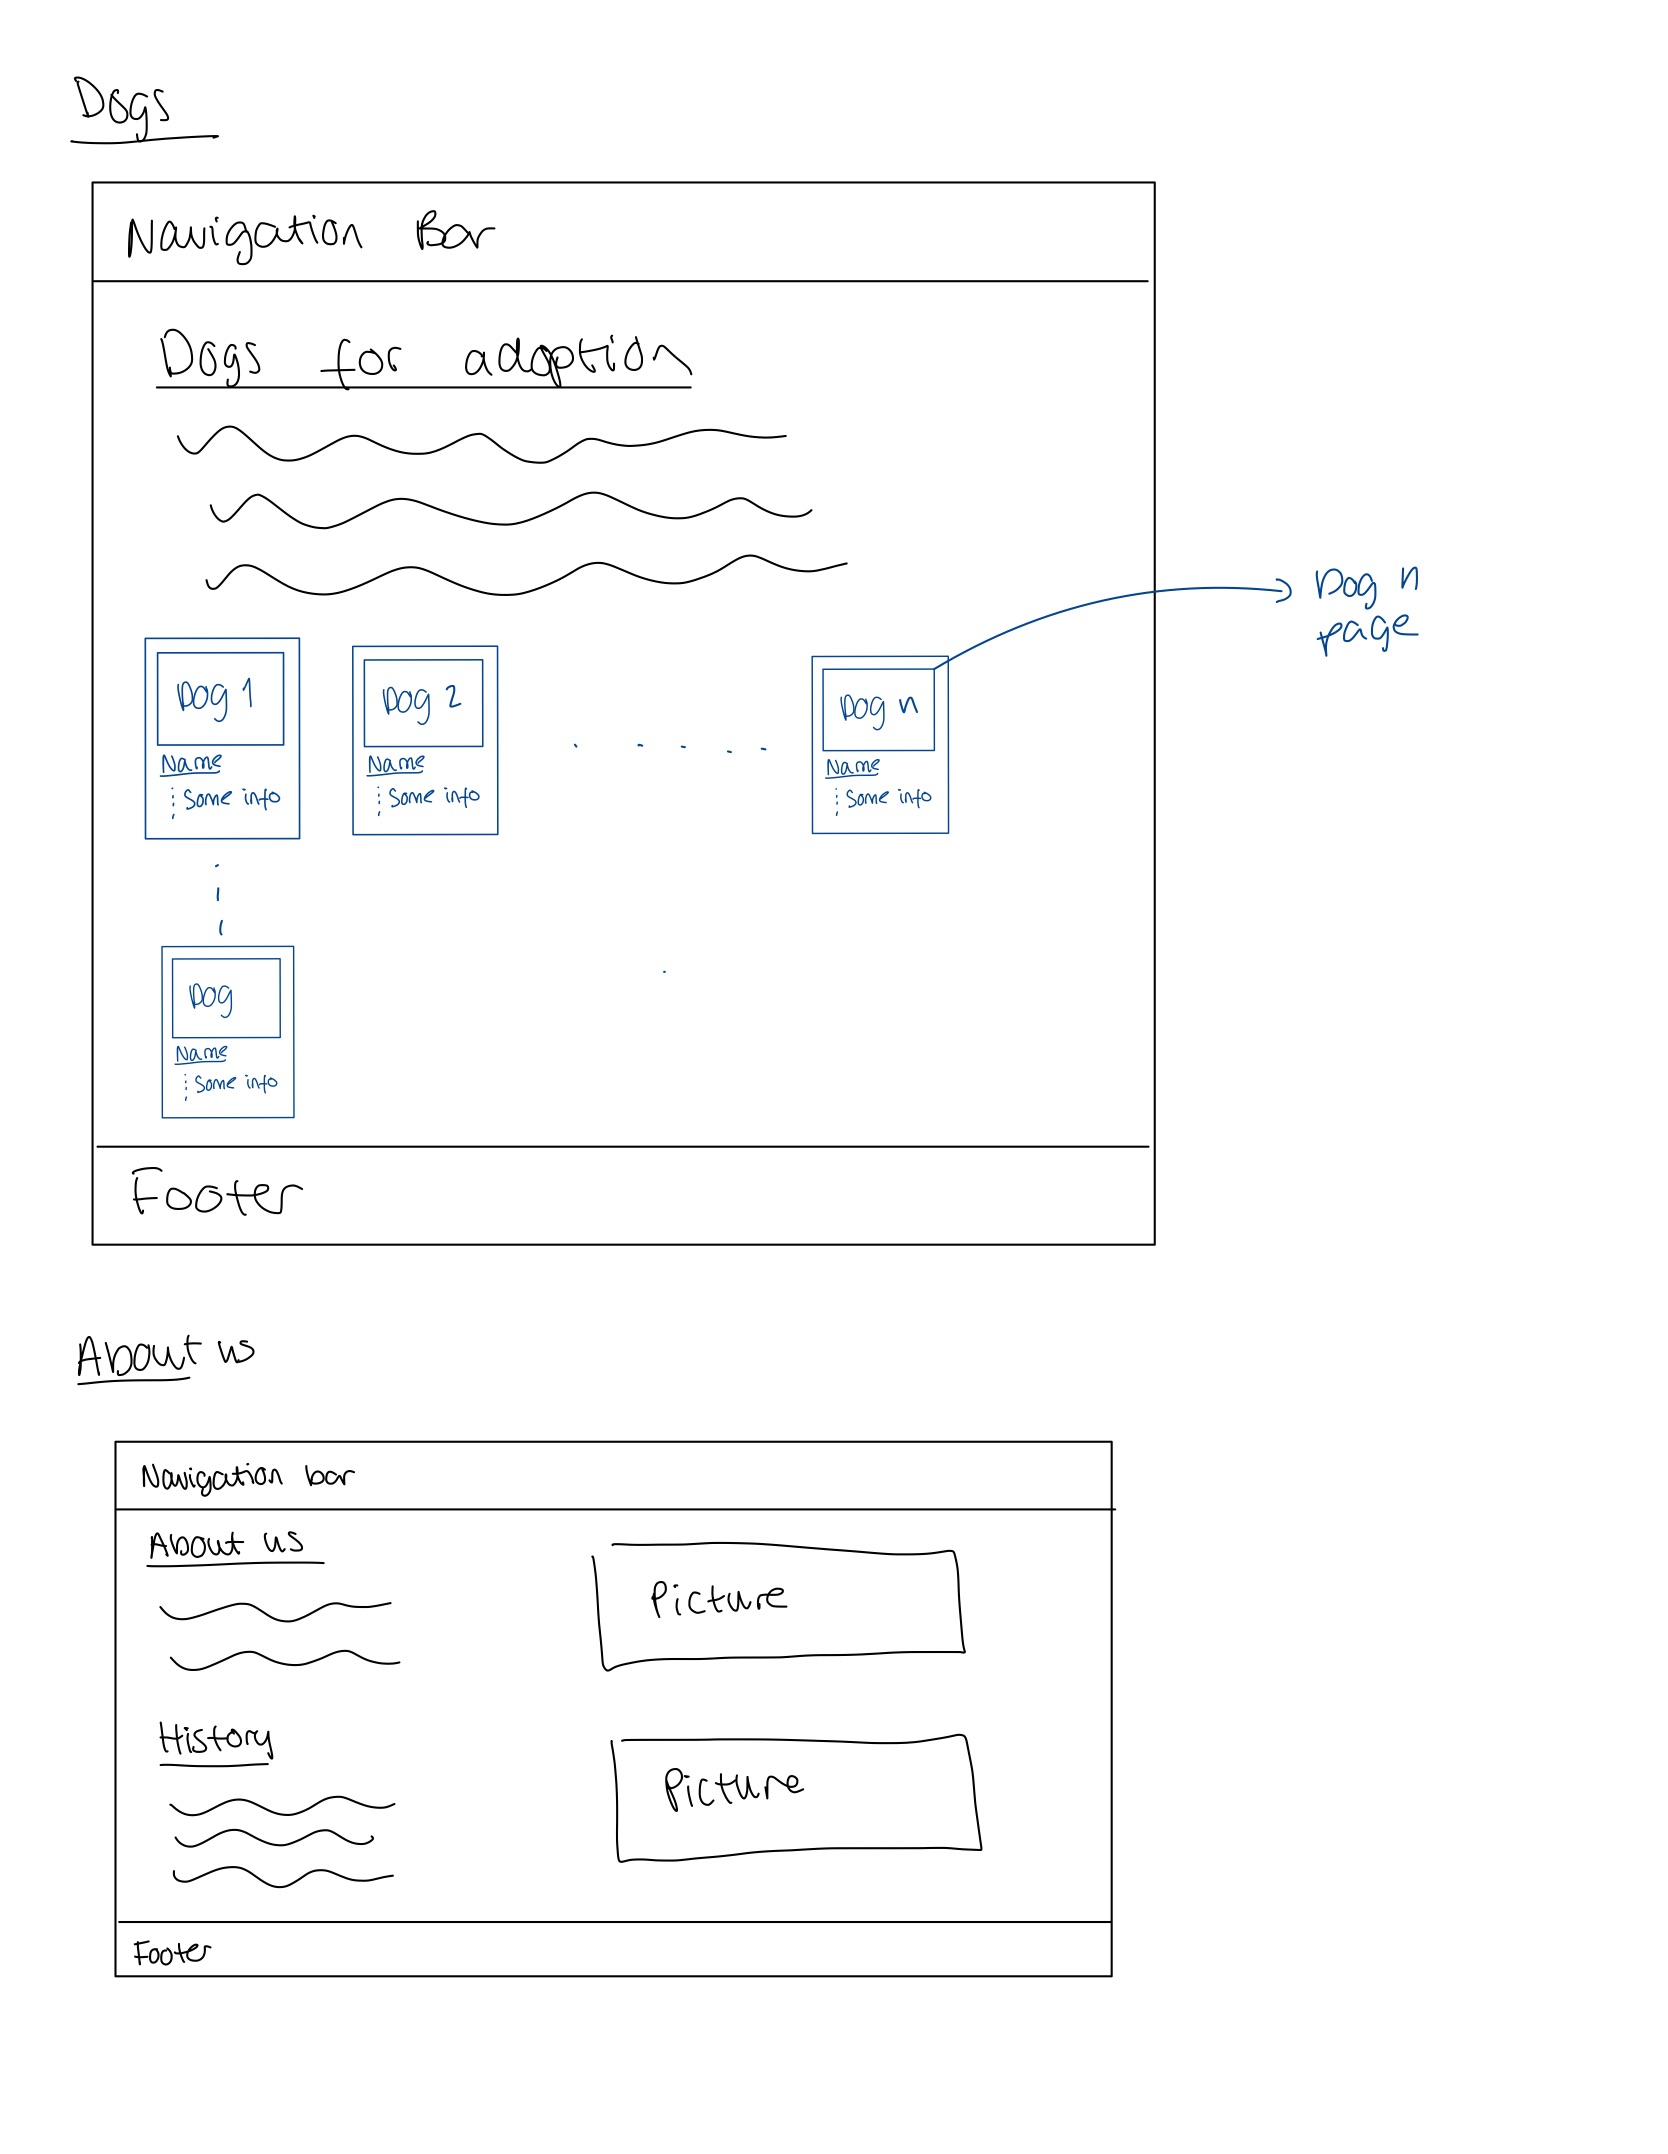 Dogs
Navigation Bar
Dogs for adoption
Dog n
page
Dog 1
Name
Some info
Dog 2
Name
Some info
Dog n
Name
Some info
Dog
Name
Some info
Footer
About us
Navigation bar
About us
Picture
History
Picture
Footer